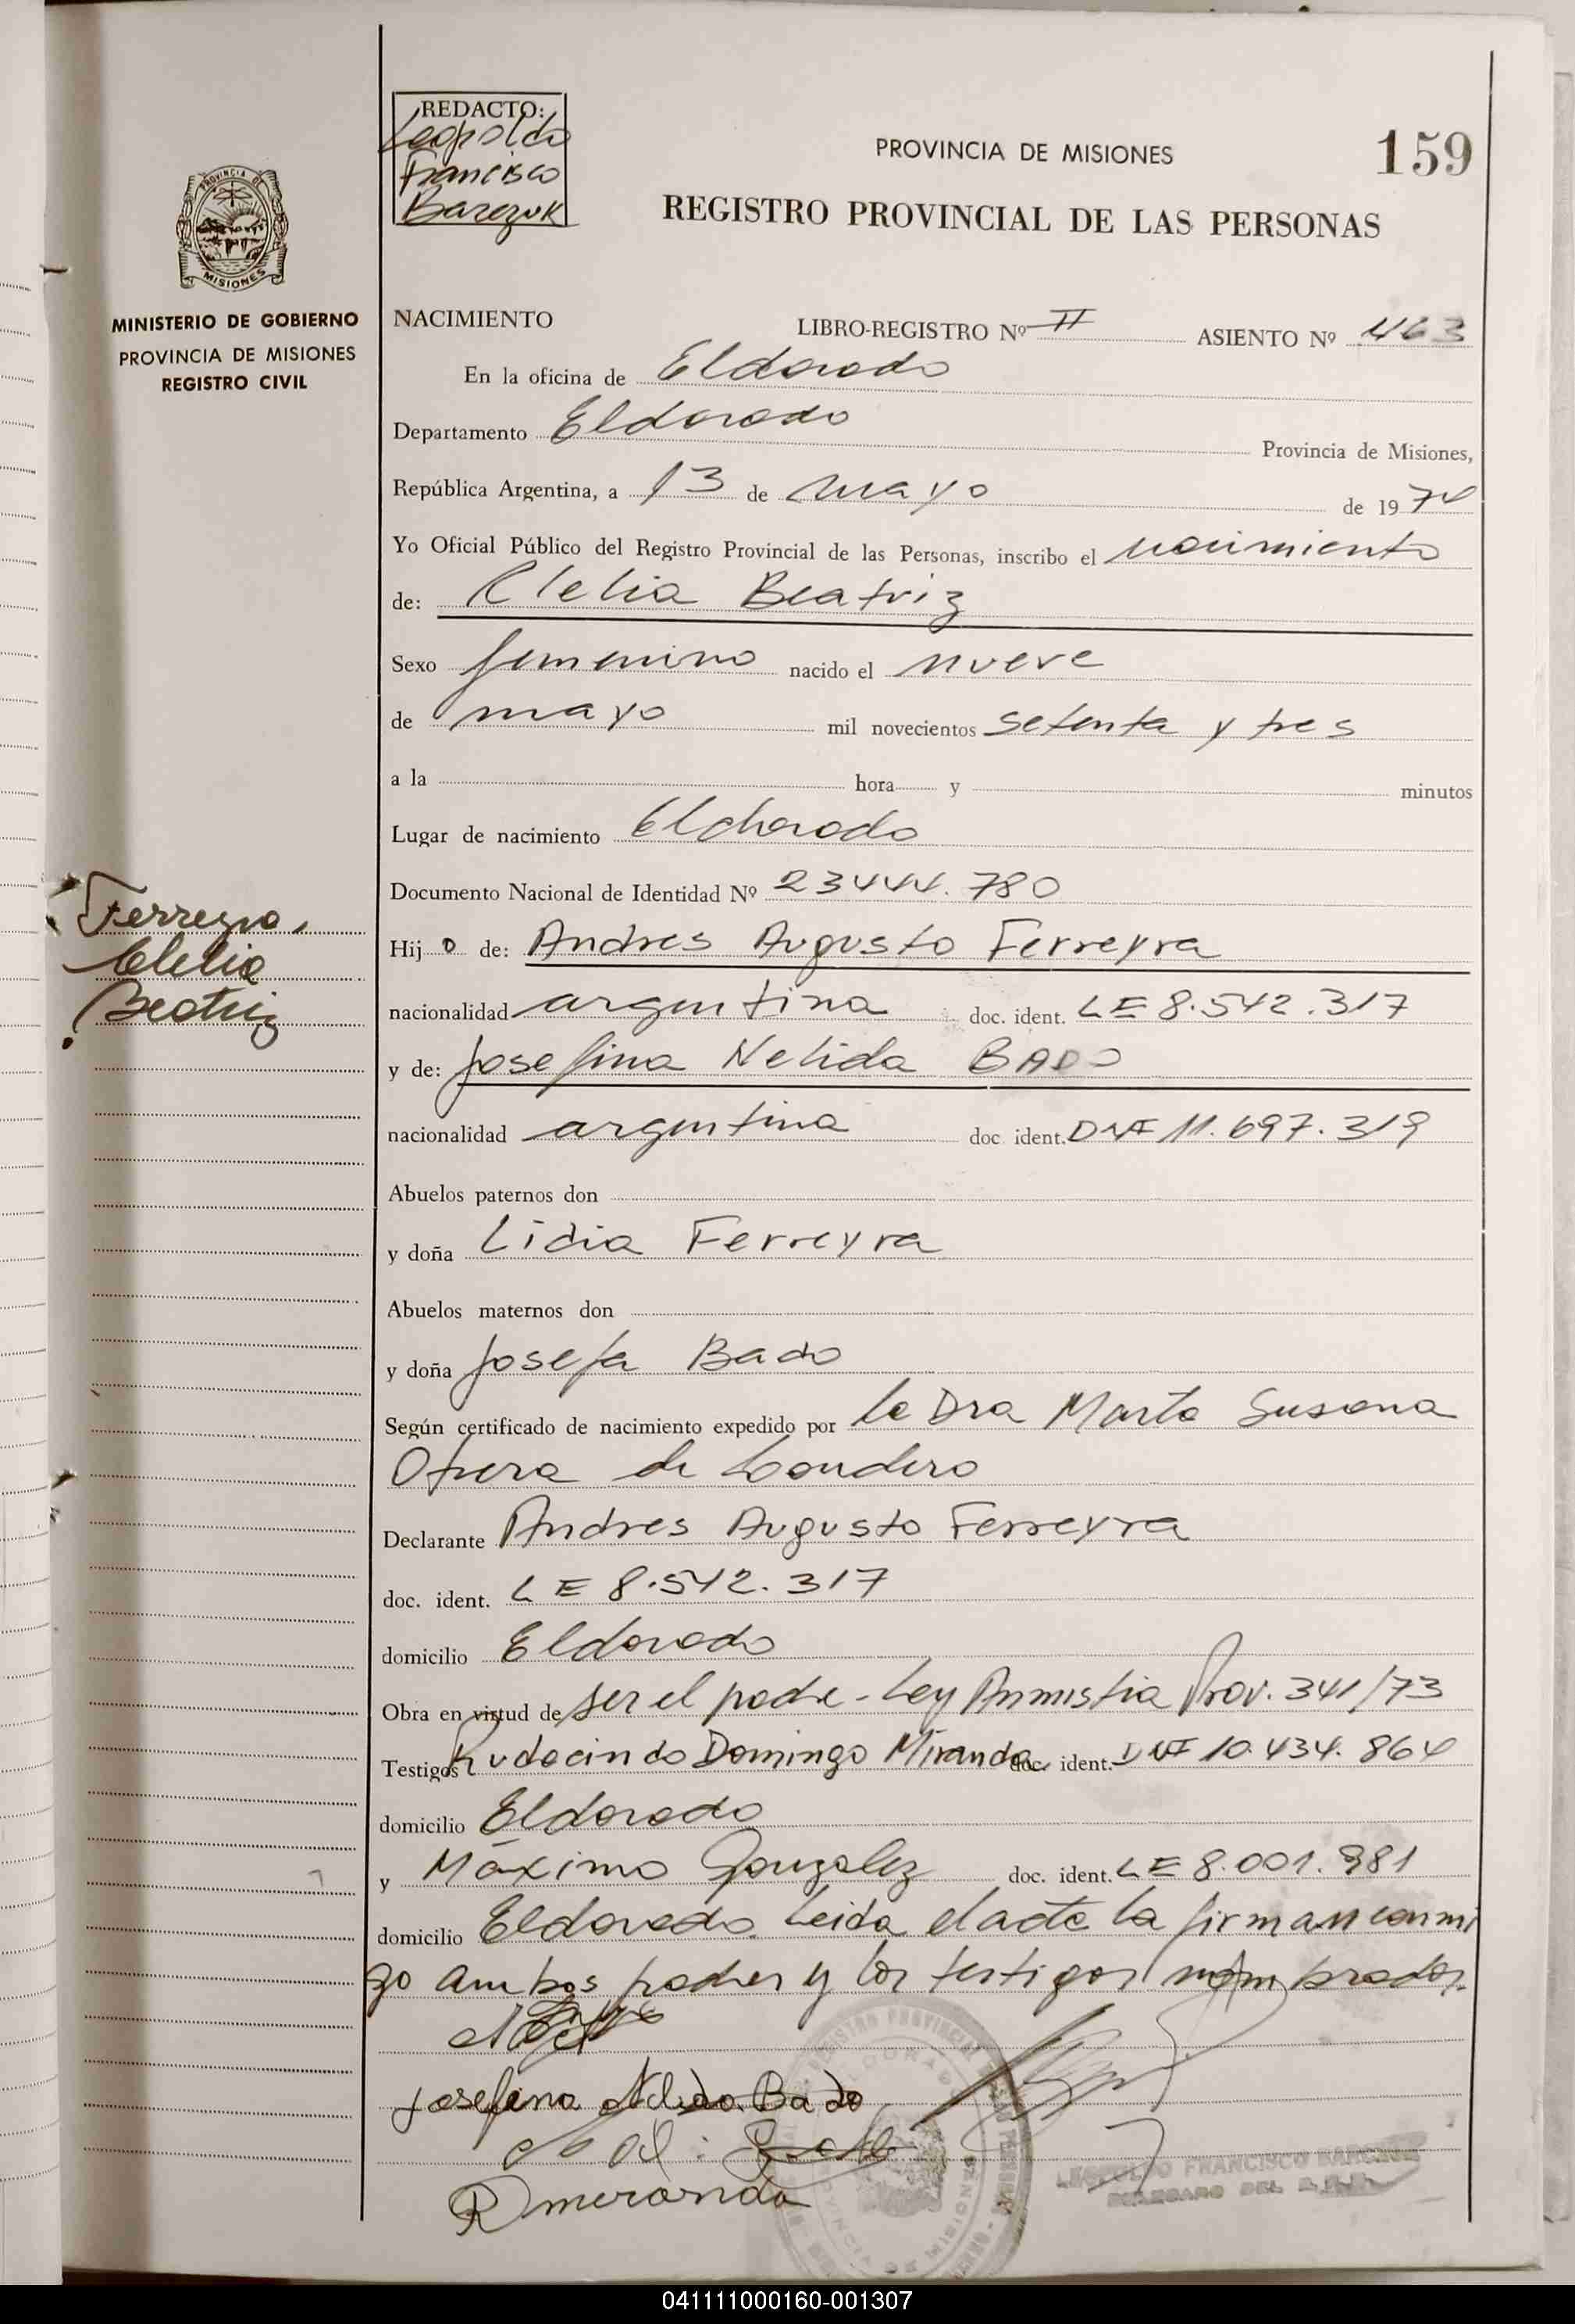 REDACTO:
Leopoldo
Francisco
Barczuk
PROVINCIA DE MISIONES
159
REGISTRO PROVINCIAL DE LAS PERSONAS
PROVINCIA DE
MISIONES
MINISTERIO DE GOBIERNO
PROVINCIA DE MISIONES
REGISTRO CIVIL
NACIMIENTO LIBRO-REGISTRO Nº II ASIENTO Nº 463
En la oficina de Eldorado
Departamento Eldorado Provincia de Misiones,
República Argentina, a 13 de mayo de 1974
Yo Oficial Público del Registro Provincial de las Personas, inscribo el nacimiento
de: Clelia Beatriz
Sexo femenino nacido el nueve
de mayo mil novecientos setenta y tres
a la hora y minutos
Lugar de nacimiento Eldorado
Documento Nacional de Identidad Nº 23444.780
Ferreyra,
Clelia
Beatriz
Hija de: Andres Augusto Ferreyra
nacionalidad argentina doc. ident. LE 8.542.317
y de: Josefina Nelida BADO
nacionalidad argentina doc ident. DNI 11.697.319
Abuelos paternos don
y doña Lidia Ferreyra
Abuelos maternos don
y doña Josefa Bado
Según certificado de nacimiento expedido por la Dra Marta Susana
de
Declarante Andres Augusto Ferreyra
doc. ident. LE 8.542.317
domicilio Eldorado
Obra en virtud de ser el padre - Ley Amnistia Prov. 341/73
Testigos Rudecindo Domingo Miranda doc. ident. DNI 10.434.864
domicilio Eldorado
y Máximo Gonzalez doc. ident. LE 8.001.981
domicilio Eldorado. Leida el acta la firman conmi
go ambos padres y los testigos nombrados.
Josefina Nelida Bado
R Miranda
LEOPOLDO FRANCISCO BARCZUK
DELEGADO DEL R.P.P.
041111000160-001307